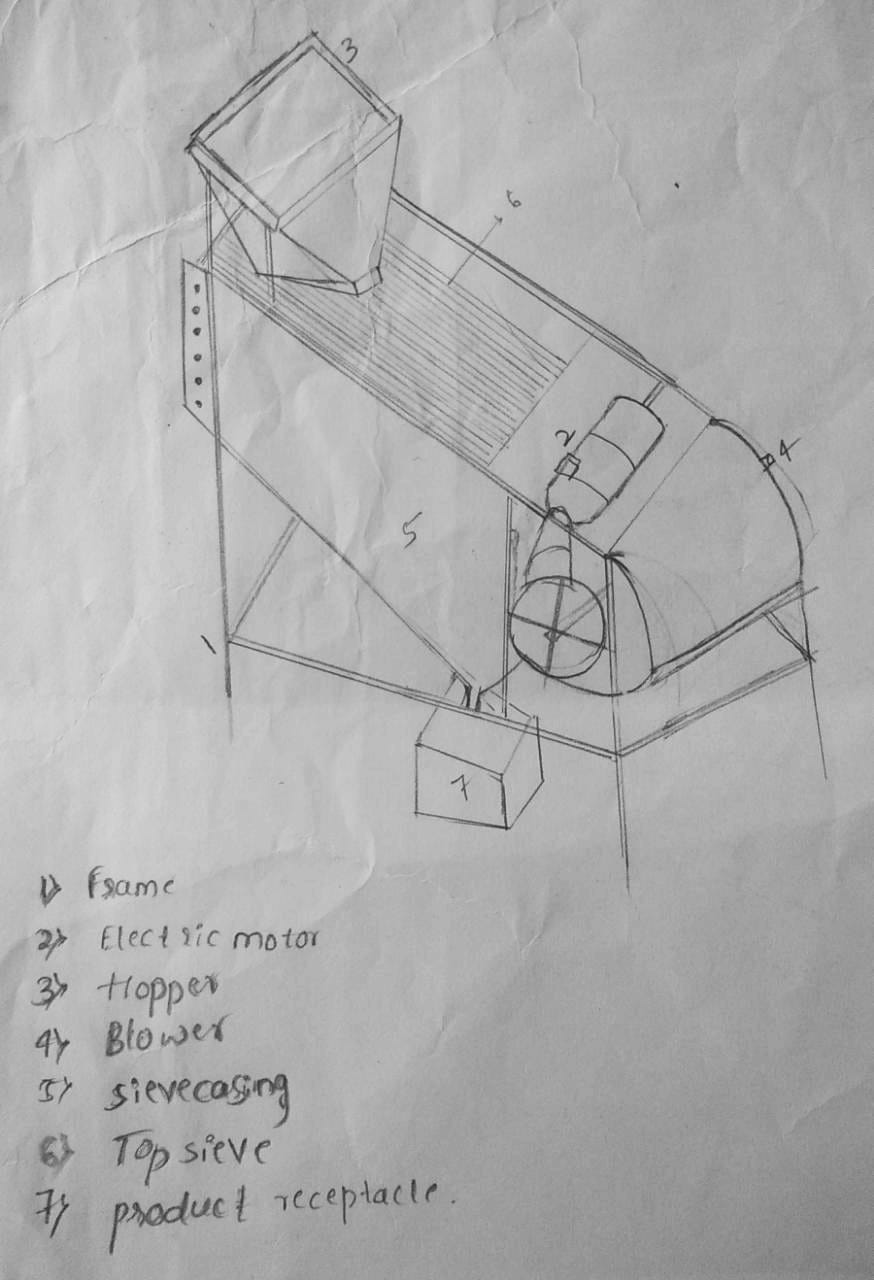 3
6
2
4
5
1
7
1) Frame
2) Electric motor
3) Hopper
4) Blower
5) sievecasing
6) Top sieve
7) product receptacle.